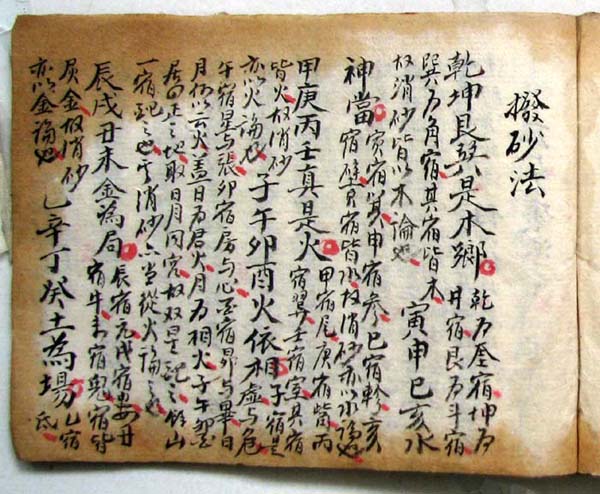 撥砂法
乾坤艮巽是木鄉
乾為奎宿坤為
井宿艮為斗宿
巽為角宿其宿皆木
故消砂皆以木論也
寅申巳亥水
神當
寅宿箕申宿參巳宿軫亥
宿壁其宿皆水故消砂亦以水論也
甲庚丙壬真是火
甲宿尾庚宿觜丙
宿翼壬宿室其宿
皆火故消砂
亦以火論也
子午卯酉火依相
子宿是
虛與危
午宿星與張卯宿房與心酉宿昴與畢日
月以云火蓋日為君火月為相火子午卯酉
居四正之地取日月同宮故双星配之餘山
一宿配之也其消砂亦當從火論之也
辰戌丑未金為局
辰宿亢戌宿婁丑
宿牛未宿鬼宿皆
屬金故消砂
亦以金論也
乙辛丁癸土為場
乙宿
氐